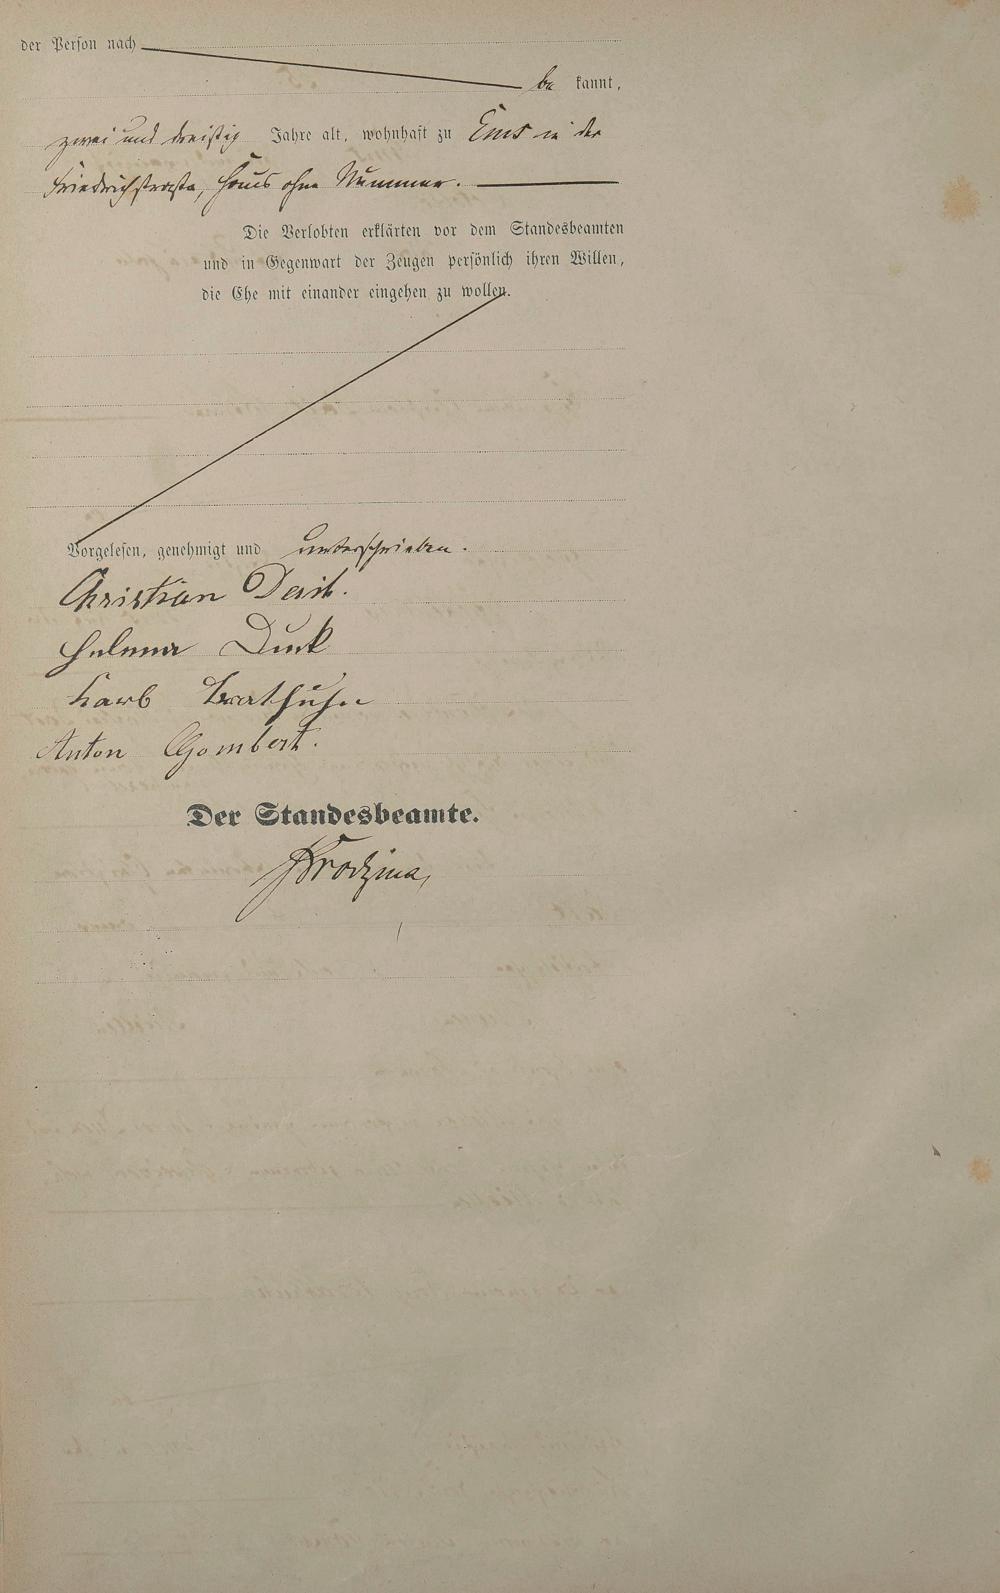 der Person nach
be kannt,
zwei und dreißig Jahre alt, wohnhaft zu Ems in der
Friedrichstraße, Haus ohne Nummer.
Die Verlobten erklärten vor dem Standesbeamten
und in Gegenwart der Zeugen persönlich ihren Willen,
die Ehe mit einander eingehen zu wollen.
Vorgelesen, genehmigt und unterschrieben.
Christian
Helena
Karl
Anton Gombert.
Der Standesbeamte.